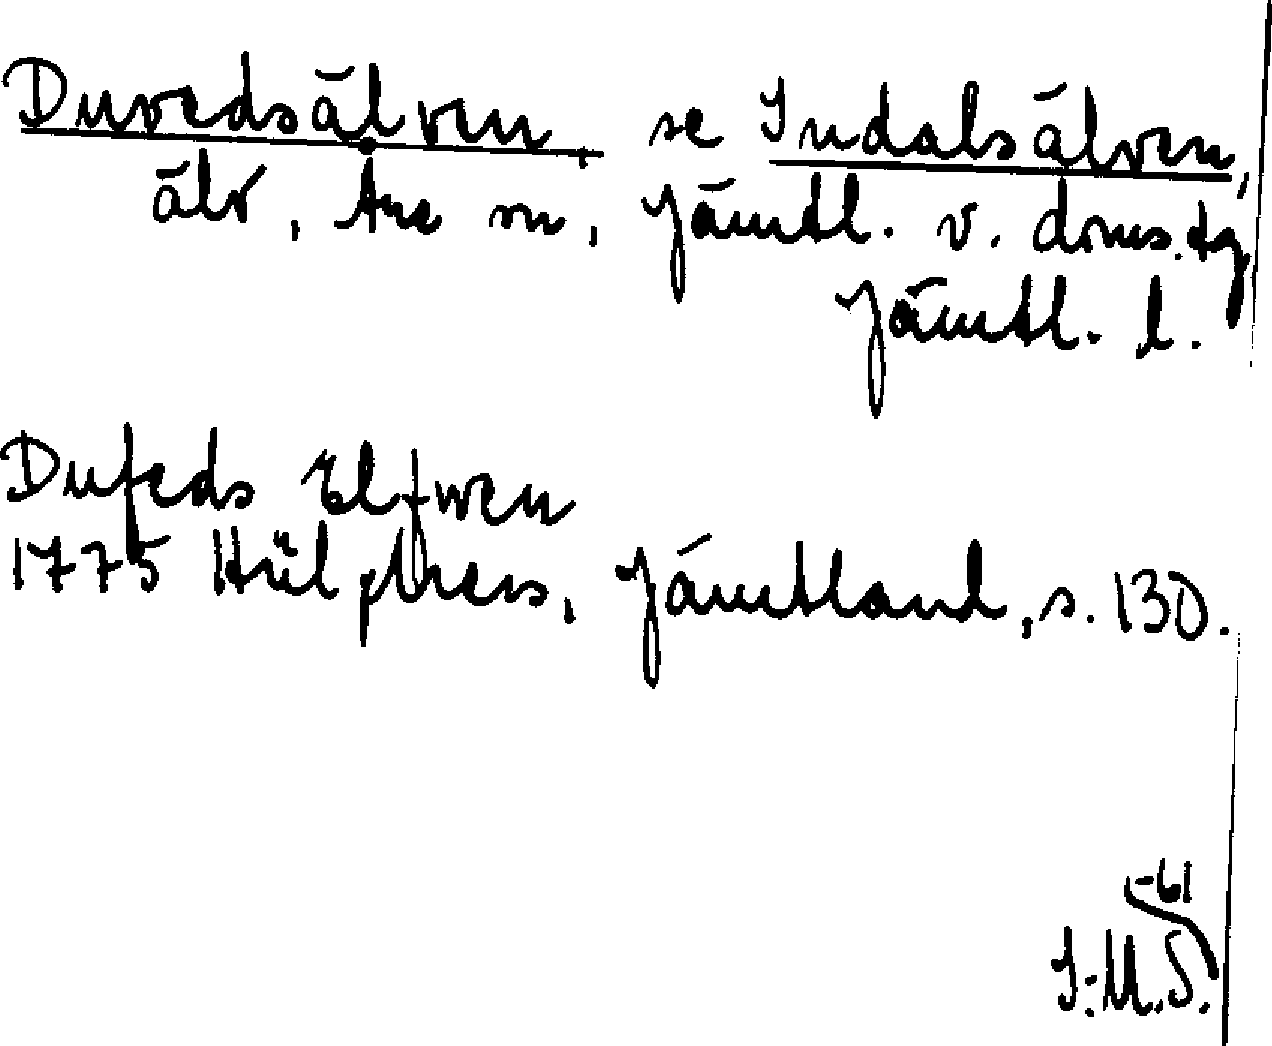 Duvedsälven, se Indalsälven,
älv, Åre sn, Jämtl. v. doms.tg,
Jämtl. l.
Dufeds Elfwen
1775 Hülphers, Jämtland, s. 130.
-61
I.-M.S.